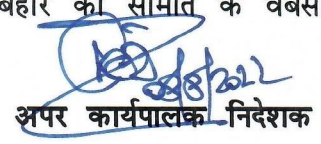 बिहार की समिति के वेबस
08/8/2022
अपर कार्यपालक निदेशक